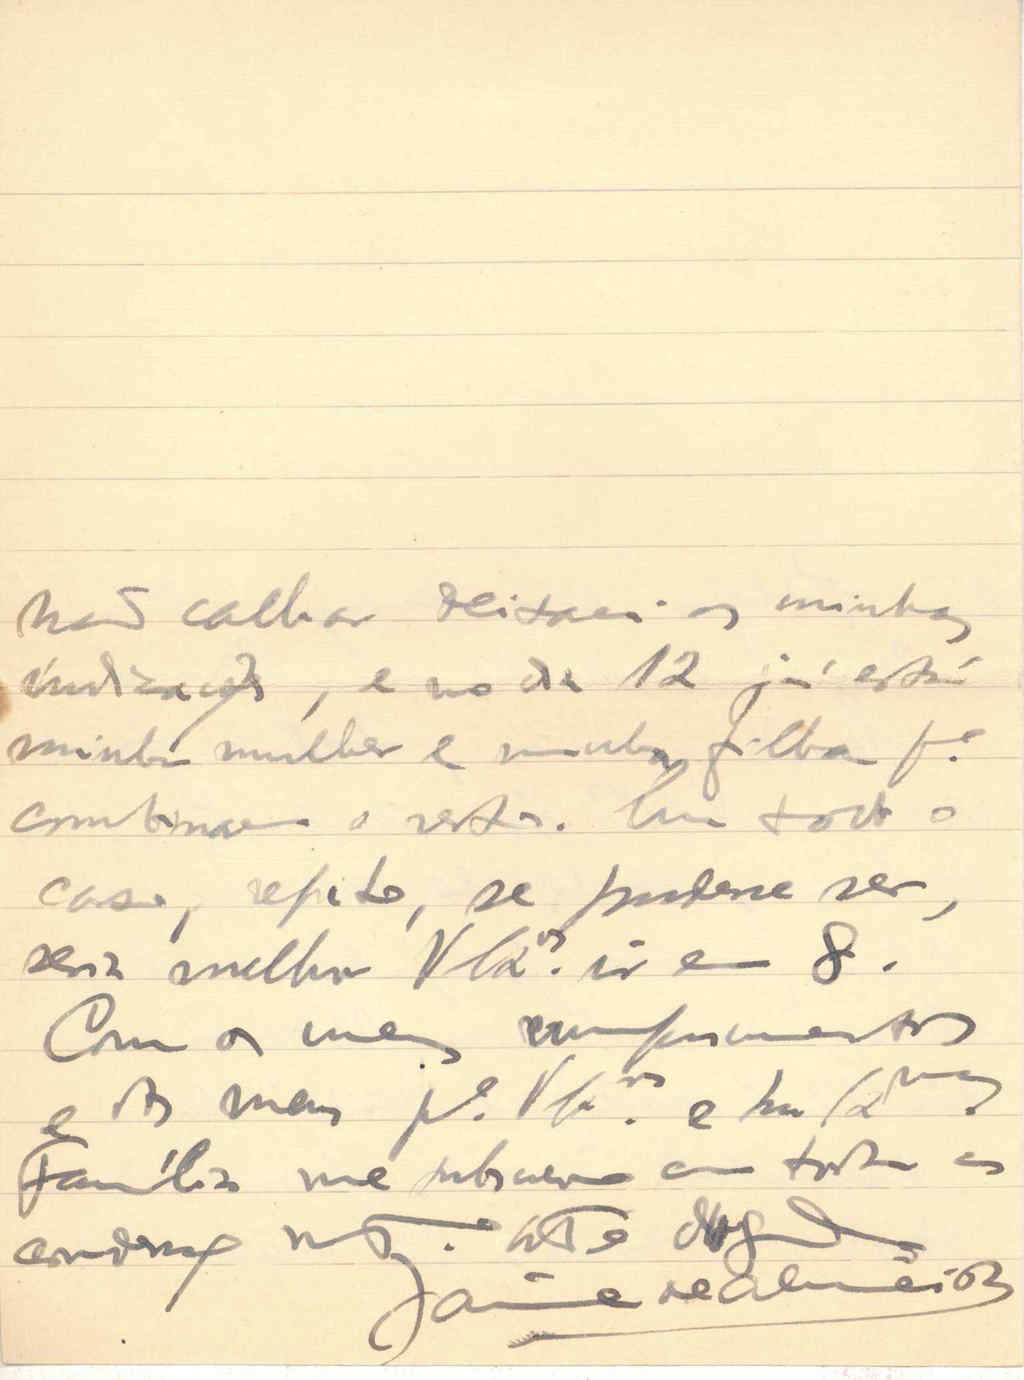 não calhar deixarei as minhas
indicações, e no dia 12 já está
minha mulher e minha filha p.ª
combinarem o resto. Em todo o
caso, repito, se pudesse ser,
seria melhor V. Ex.as ir em 8.
Com os meus cumprimentos
e dos meus p.ª V. Ex.as e Ex.mas
Família me subscrevo com toda a
consideração m.to at.e obgdo
Jaime de Almeida